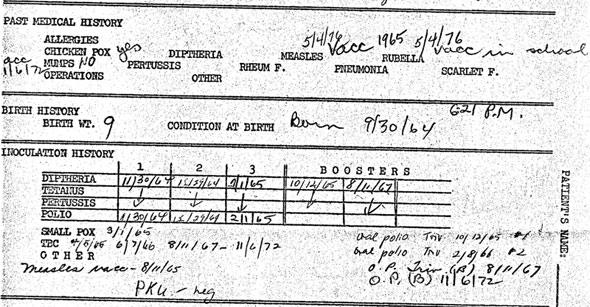 PAST MEDICAL HISTORY
5/4/76
ALLERGIES
CHICKEN POX yes DIPTHERIA MEASLES Vacc 1965 RUBELLA 5/4/76 vacc in school
vacc 11/6/72 MUMPS NO PERTUSSIS RHEUM F. PNEUMONIA SCARLET F.
OPERATIONS OTHER
BIRTH HISTORY
BIRTH WT. 9 CONDITION AT BIRTH Born 9/30/64 621 P.M.
INOCULATION HISTORY
1 2 3 BOOSTERS
DIPTHERIA 11/30/64 12/29/64 2/1/65 10/12/65 8/11/67
TETANUS
PERTUSSIS
POLIO 11/30/64 12/29/64 2/1/65
SMALL POX 3/1/65 oral polio Triv 10/12/65 #1
TBC 6/7/66 8/11/67 - 11/6/72 oral polio Triv 2/8/66 #2
OTHER O.P. Triv. (R) 8/11/67
Measles vacc - 8/11/65 O.P. (B) 11/6/72
PKU - neg
PATIENT'S NAME: